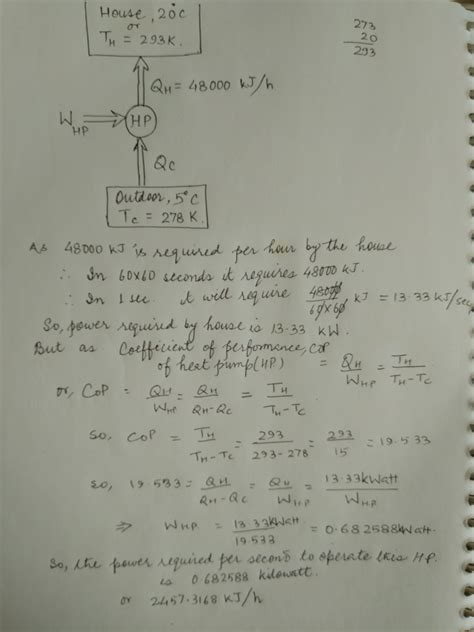 House, 20°C
or
T_H = 293K.
273
20
293
Q_H = 48000 kJ/h
W_HP
HP
Q_C
Outdoor, 5°C
T_C = 278 K.
As 48000 KJ is required per hour by the house
∴ In 60x60 seconds it requires 48000 KJ.
∴ In 1 sec. it will require 48000/60x60 KJ = 13.33 KJ/sec
So, power required by house is 13.33 KW.
But as Coefficient of performance, COP
of heat pump (HP) = Q_H/W_HP = T_H/T_H-T_C
or, COP = Q_H/W_HP = Q_H/Q_H-Q_C = T_H/T_H-T_C
So, COP = T_H/T_H-T_C = 293/293-278 = 293/15 = 19.533
So, 19.533 = Q_H/Q_H-Q_C = Q_H/W_HP = 13.33kWatt/W_HP
⇒ W_HP = 13.33kWatt/19.533 = 0.682588 kWatt.
So, the power required per second to operate this HP.
is 0.682588 kilowatt.
or 2457.3168 KJ/h